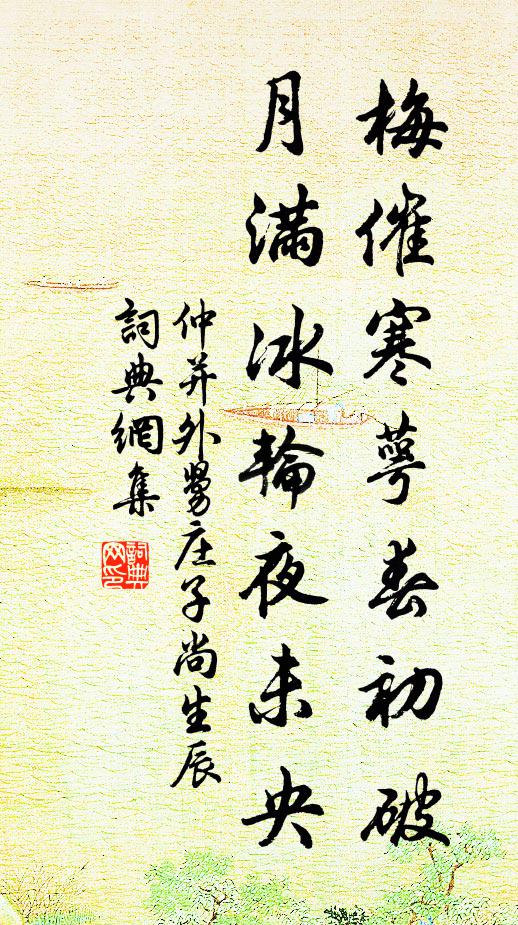 梅催寒萼春初破
月滿冰輪夜未央
仲并外舅庄子尚生辰
詞典網集
詞典網印